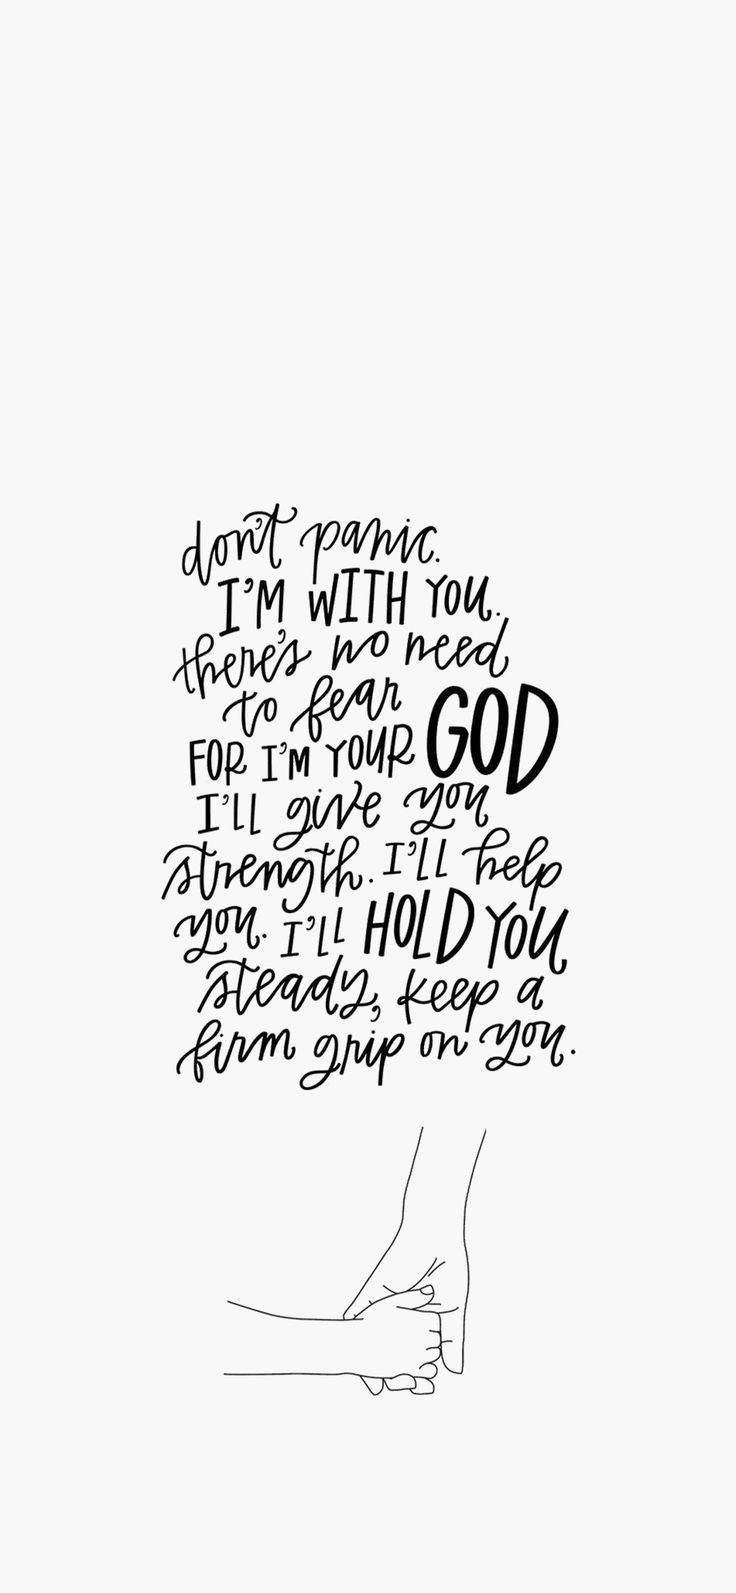 don't panic.
I'M WITH YOU.
there's no need
to fear
FOR I'M YOUR GOD
I'LL give you
strength. I'LL help
you. I'LL HOLD YOU
steady, keep a
firm grip on you.